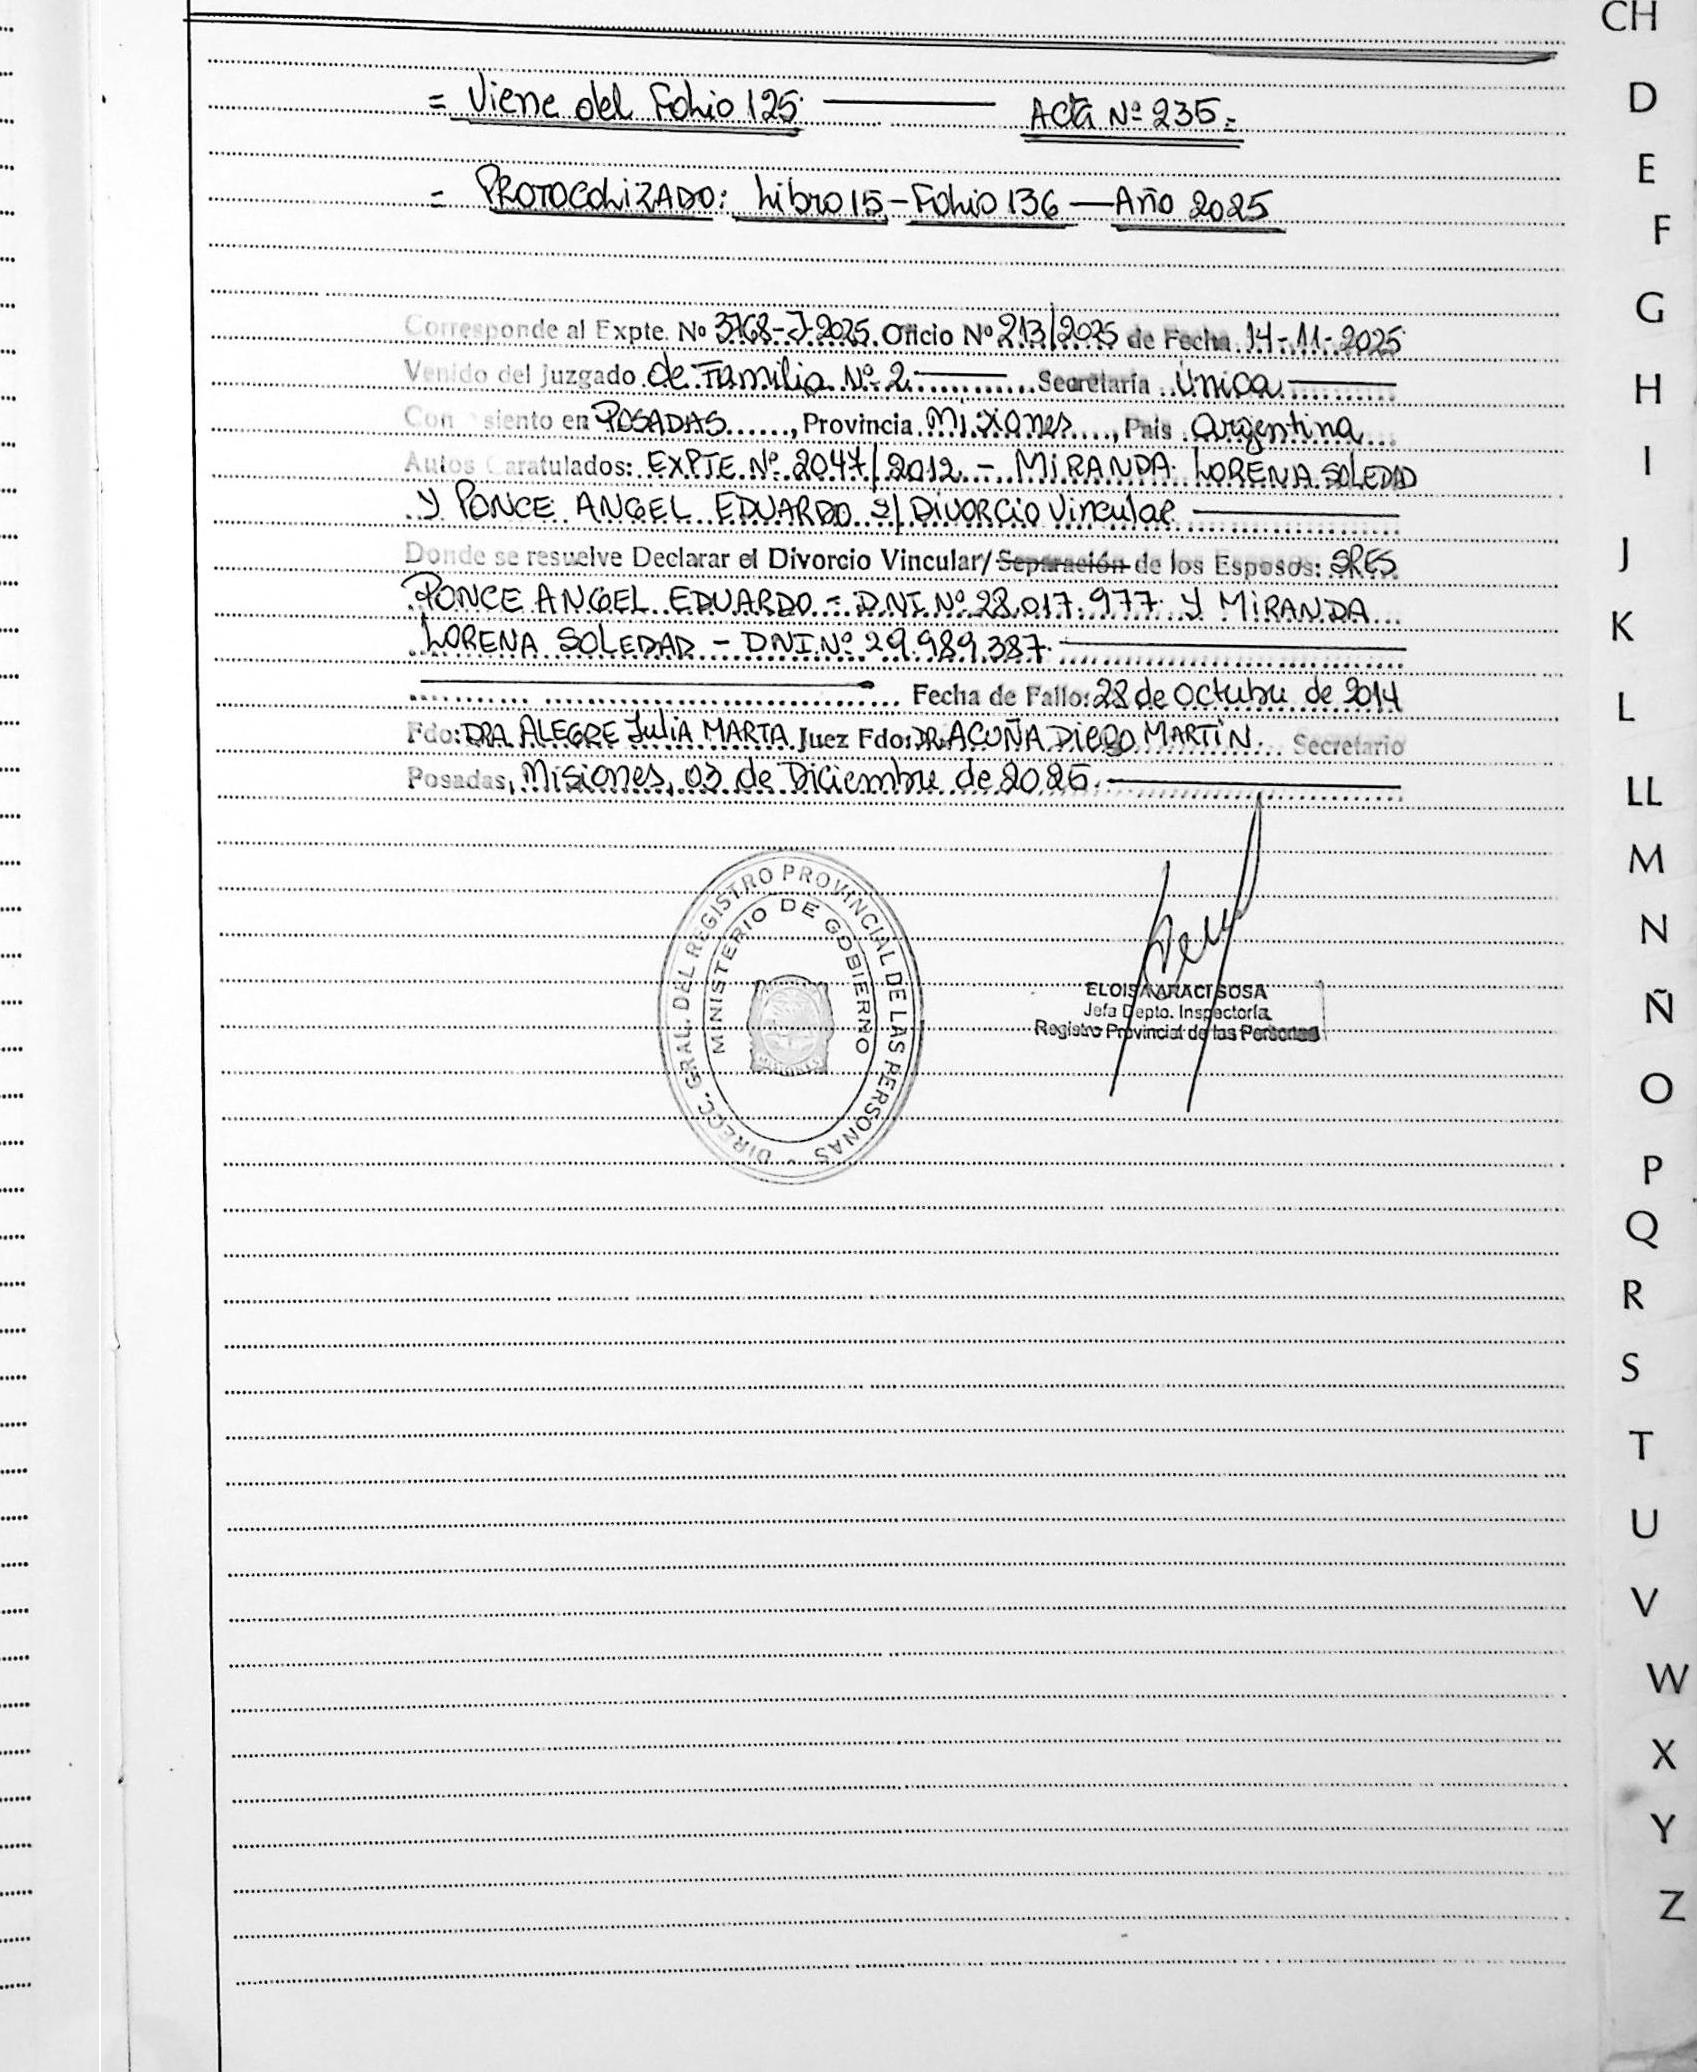 CH
= Viene del Folio 125. Acta Nº 235.=
D
E
= PROTOCOLIZADO: Libro 15 - Folio 136 - Año 2025
F
G
Corresponde al Expte. Nº 3768-J-2025. Oficio Nº 213/2025 de Fecha 14-11-2025
Venido del Juzgado de Familia Nº 2 Secretaría Única
H
Con siento en POSADAS, Provincia Misiones, Pais Argentina
I
Autos Caratulados: EXPTE. Nº 2047/2012 - MIRANDA LORENA SOLEDAD
Y PONCE ANGEL EDUARDO S/ Divorcio Vincular
J
Donde se resuelve Declarar el Divorcio Vincular/Separación de los Esposos: SRES
PONCE ANGEL EDUARDO - DNI Nº 28.017.977 Y MIRANDA
K
LORENA SOLEDAD - DNI Nº 29.989.387.
Fecha de Fallo: 28 de Octubre de 2014
L
Fdo: DRA. ALEGRE Julia MARTA Juez Fdo: DR. ACUÑA DIEGO MARTIN. Secretario
Posadas, Misiones, 03 de Diciembre de 2025.
LL
M
N
Ñ
O
P
Q
R
S
T
U
V
W
X
Y
Z
DIRECC. GRAL. DEL REGISTRO PROVINCIAL DE LAS PERSONAS
MINISTERIO DE GOBIERNO
MISIONES
ELOISA ARACI SOSA
Jefa Depto. Inspectoría
Registro Provincial de las Personas